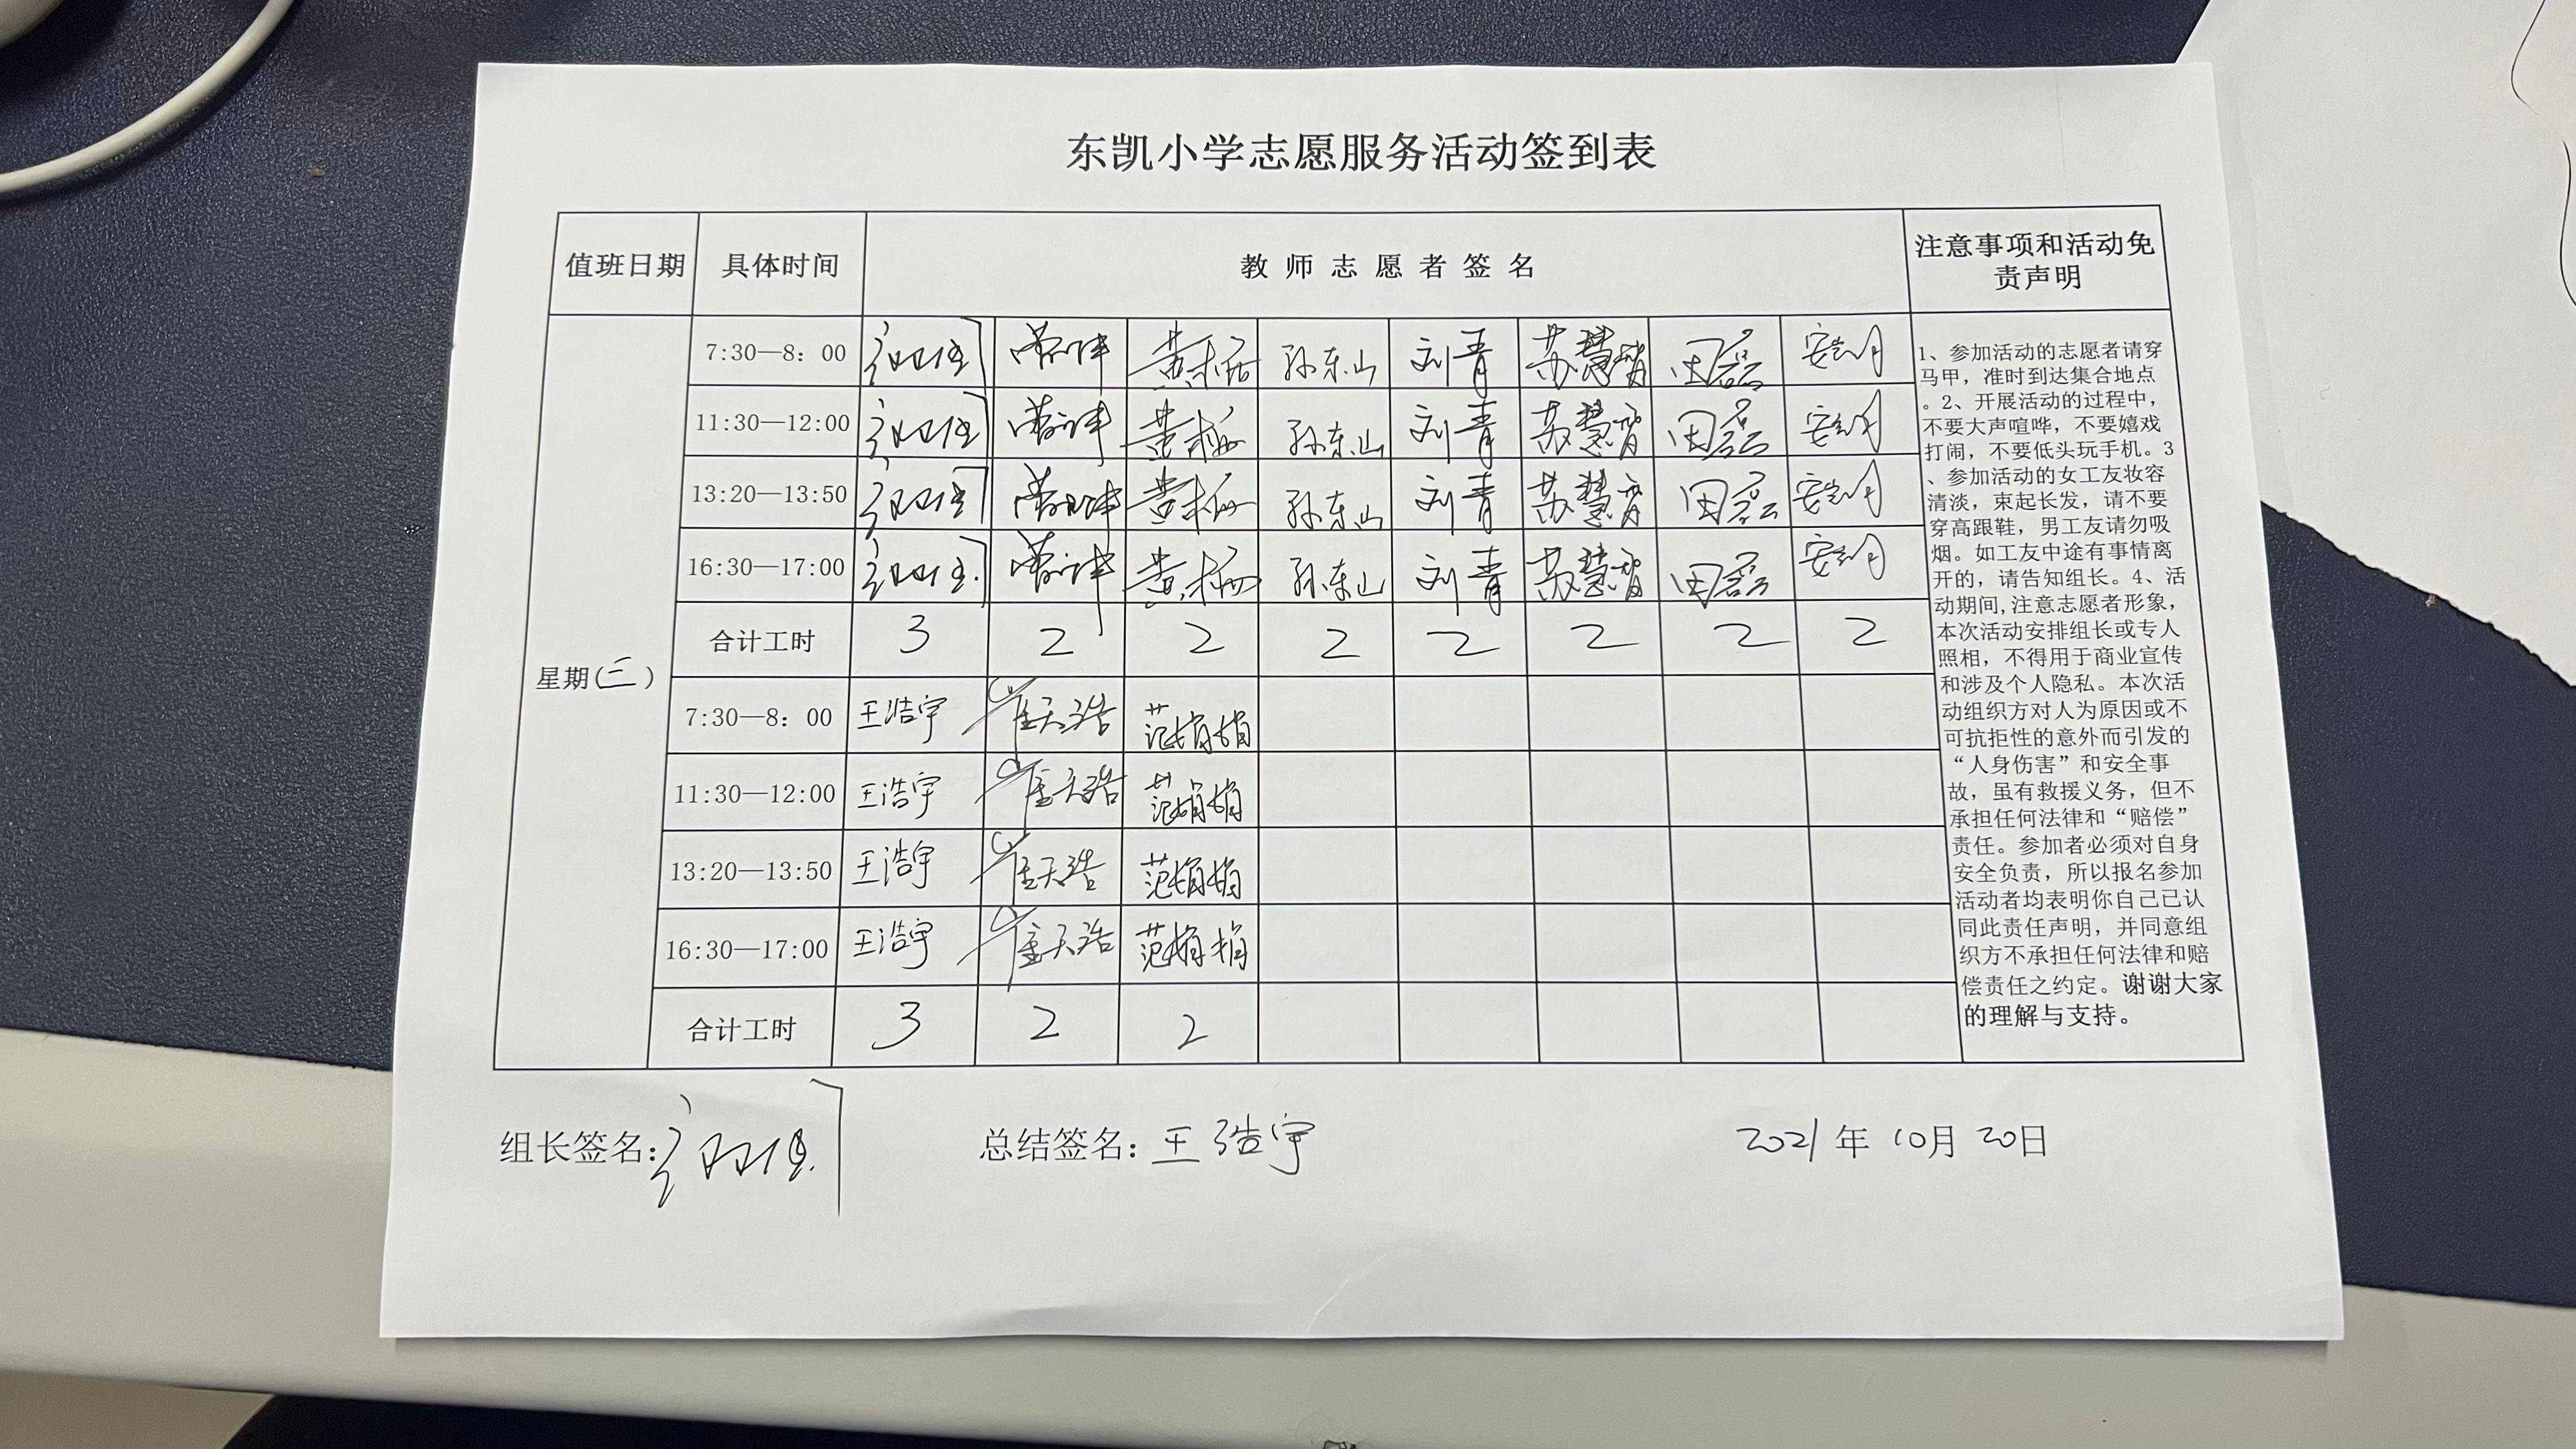 东凯小学志愿服务活动签到表
值班日期 具体时间 教师志愿者签名 注意事项和活动免
责声明
星期(三)
7:30—8：00 孙东山 刘青 苏慧智 田磊
11:30—12:00 孙东山 刘青 苏慧智 田磊
13:20—13:50 孙东山 刘青 苏慧智 田磊
16:30—17:00 孙东山 刘青 苏慧智 田磊
合计工时 3 2 2 2 2 2 2 2
7:30—8：00 王浩宇 崔天浩 范娟娟
11:30—12:00 王浩宇 崔天浩 范娟娟
13:20—13:50 王浩宇 崔天浩 范娟娟
16:30—17:00 王浩宇 崔天浩 范娟娟
合计工时 3 2 2
1、参加活动的志愿者请穿
马甲，准时到达集合地点
。2、开展活动的过程中，
不要大声喧哗，不要嬉戏
打闹，不要低头玩手机。3
、参加活动的女工友妆容
清淡，束起长发，请不要
穿高跟鞋，男工友请勿吸
烟。如工友中途有事情离
开的，请告知组长。4、活
动期间,注意志愿者形象，
本次活动安排组长或专人
照相，不得用于商业宣传
和涉及个人隐私。本次活
动组织方对人为原因或不
可抗拒性的意外而引发的
“人身伤害”和安全事
故，虽有救援义务，但不
承担任何法律和“赔偿”
责任。参加者必须对自身
安全负责，所以报名参加
活动者均表明你自己已认
同此责任声明，并同意组
织方不承担任何法律和赔
偿责任之约定。谢谢大家
的理解与支持。
组长签名： 总结签名：王浩宇 2021年10月20日